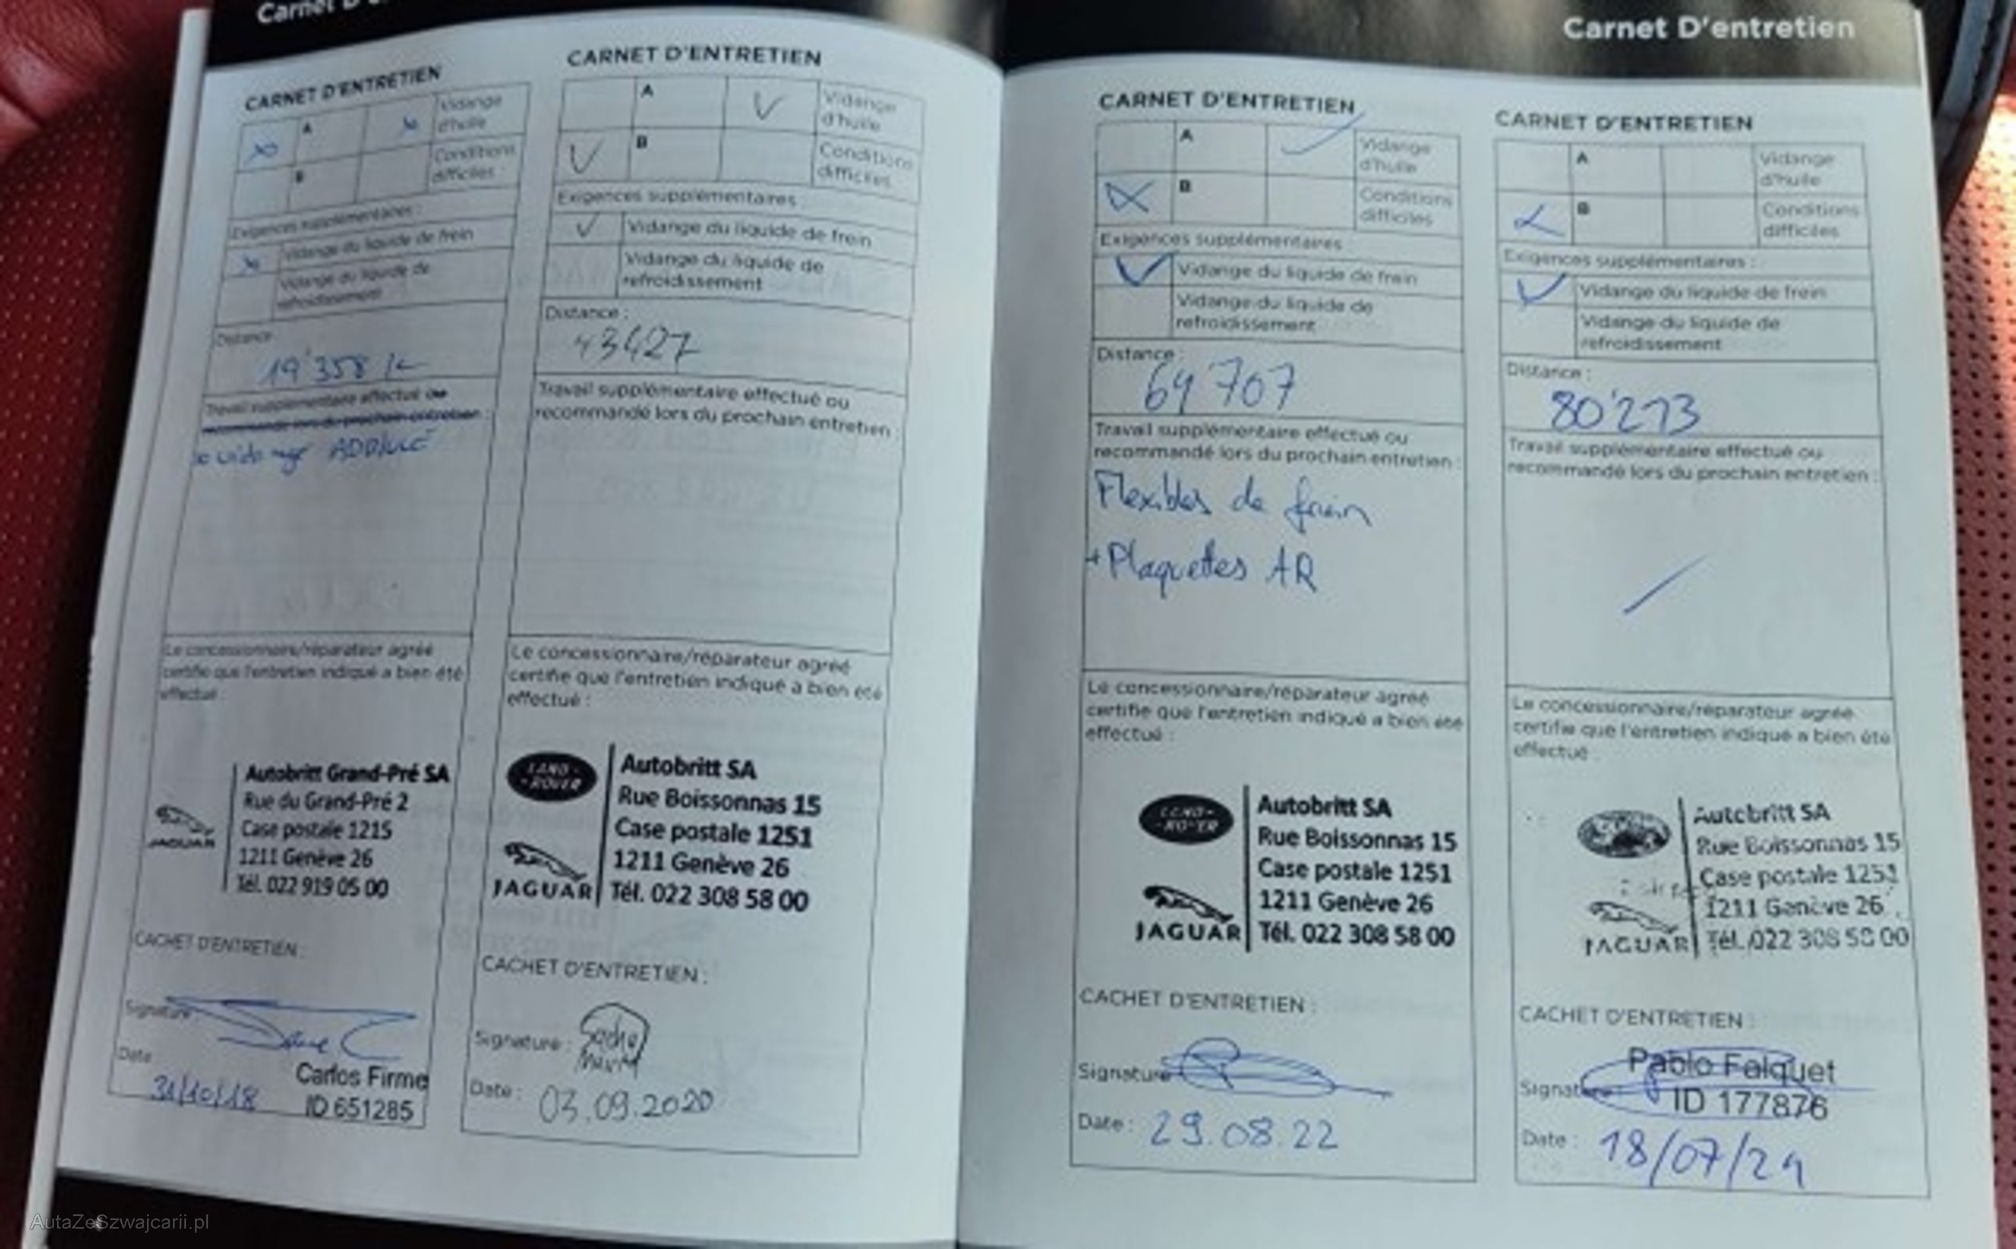 Carnet D'entretien
CARNET D'ENTRETIEN
A
Vidange
d'huile
B
Conditions
difficiles
Exigences supplémentaires :
Vidange du liquide de frein
Vidange du liquide de
refroidissement
Distance :
19'358 k
Travail supplémentaire effectué ou
recommandé lors du prochain entretien :
vidange ADBLUE
Le concessionnaire/réparateur agréé
certifie que l'entretien indiqué a bien été
effectué :
JAGUAR
Autobritt Grand-Pré SA
Rue du Grand-Pré 2
Case postale 1215
1211 Genève 26
Tél. 022 919 05 00
CACHET D'ENTRETIEN :
Signature :
Date :
31/10/18
Carlos Firme
ID 651285
CARNET D'ENTRETIEN
A
Vidange
d'huile
B
Conditions
difficiles
Exigences supplémentaires :
Vidange du liquide de frein
Vidange du liquide de
refroidissement
Distance :
43427
Travail supplémentaire effectué ou
recommandé lors du prochain entretien :
Le concessionnaire/réparateur agréé
certifie que l'entretien indiqué a bien été
effectué :
LAND-
-ROVER
JAGUAR
Autobritt SA
Rue Boissonnas 15
Case postale 1251
1211 Genève 26
Tél. 022 308 58 00
CACHET D'ENTRETIEN :
Signature :
Date : 03.09.2020
Carnet D'entretien
CARNET D'ENTRETIEN
A
Vidange
d'huile
B
Conditions
difficiles
Exigences supplémentaires
Vidange du liquide de frein
Vidange du liquide de
refroidissement
Distance :
64'707
Travail supplémentaire effectué ou
recommandé lors du prochain entretien :
Flexibles de frein
+Plaquettes AR
Le concessionnaire/réparateur agréé
certifie que l'entretien indiqué a bien été
effectué :
LAND-
-ROVER
JAGUAR
Autobritt SA
Rue Boissonnas 15
Case postale 1251
1211 Genève 26
Tél. 022 308 58 00
CACHET D'ENTRETIEN :
Signature
Date : 29.08.22
CARNET D'ENTRETIEN
A
Vidange
d'huile
B
Conditions
difficiles
Exigences supplémentaires :
Vidange du liquide de frein
Vidange du liquide de
refroidissement
Distance :
80'273
Travail supplémentaire effectué ou
recommandé lors du prochain entretien :
Le concessionnaire/réparateur agréé
certifie que l'entretien indiqué a bien été
effectué :
JAGUAR
Autobritt SA
Rue Boissonnas 15
Case postale 1251
1211 Genève 26
Tél. 022 308 58 00
CACHET D'ENTRETIEN :
Pablo Falquet
Signature :
ID 177876
Date : 18/07/24
AutaZeSzwajcarii.pl